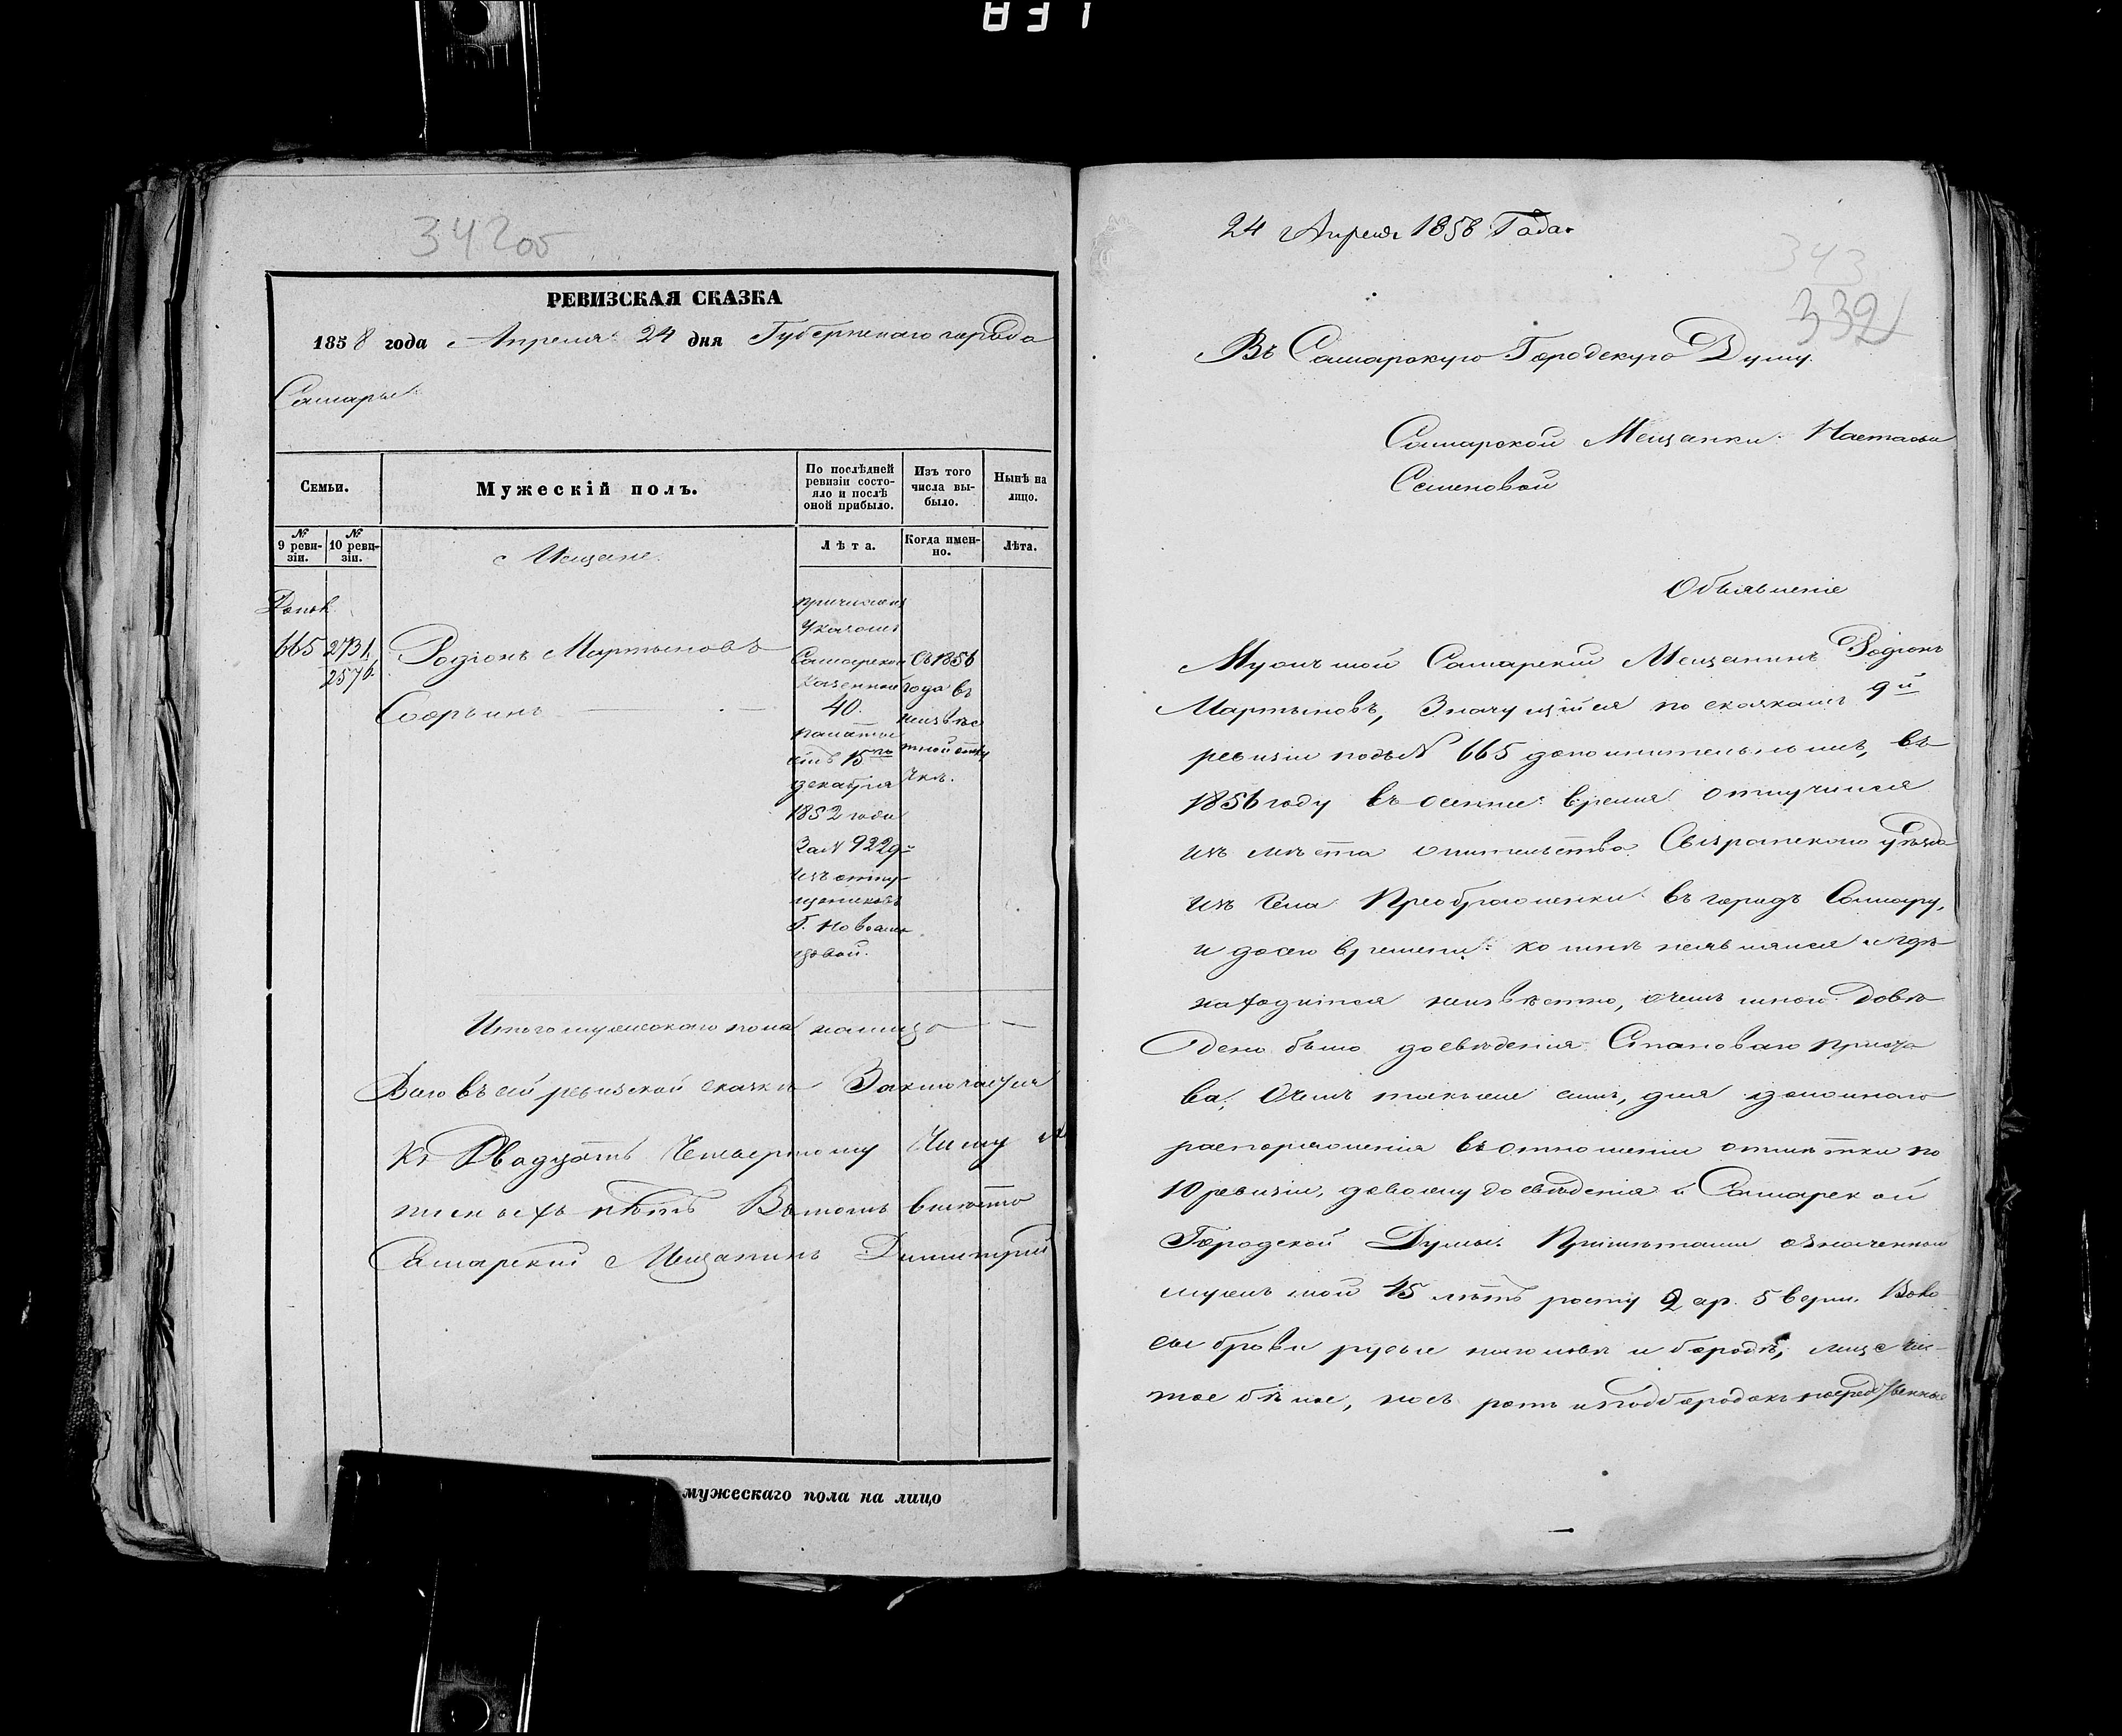 831
342 об
РЕВИЗСКАЯ СКАЗКА
1858 года Апреля 24 дня Губернскаго города
Самары
Семьи.
Мужескій полъ.
По послѣдней ревизіи состо-
яло и послѣ оной прибыло.
Изъ того числа вы-
было.
Нынѣ на лицо.
№ 9 реви-
зіи.
№ 10 реви-
зіи.
Мещане.
Лѣта.
Когда имен-
но.
Лѣта.
Допол.
665
2731.
2576.
Родіонъ Мартыновъ
причислен
Указомъ
Самарской
Казенной
40.
палаты
отъ 15го
декабря
1852 года
За № 9229
изъ отпу-
щенниковъ
Г.
Съ 1856
года въ
неизвѣс
тной отлу
чкѣ.
Итого мужескаго пола налицо
Всего въ сей ревизской сказки Заключается
къ Двадцать Четвертому Числу
нѣтъ Въ томъ вместо
Самарский Мещанинъ Димитрий
мужескаго пола на лицо
24 Апреля 1858 Года
343
332
Въ Самарскую Городскую Думу.
Самарской Мещанки Настасьи
Семеновой
Объявленіе
Мужъ мой Самарскій Мещанинъ Родіонъ
Мартыновъ, Значущійся по сказкамъ 9й
ревизіи подъ № 665 дополнительнымъ, въ
1856 году въ осенние время отлучился
изъ мѣста жительства Сызранскаго уѣзда
изъ села Преображенки въ городъ Самару,
и досего времени ко мнѣ неявлялся и гдѣ
находится неизвѣстно, очемъ мною дове
дено было досвѣденія Становаго Приста
ва, Очемъ такъже симъ, для должнаго
распоряженія въ отношеніи отмѣтки по
10 ревизіи, довожу до свѣденія и Самарской
Городской Думы. Примѣтами означенный
мужъ мой 45 лѣтъ росту 2 ар. 5 верш. Воло
сы брови русые наголовѣ и бородѣ, лице чис-
тое бѣлое, носъ ротъ и подбородокъ посредственные